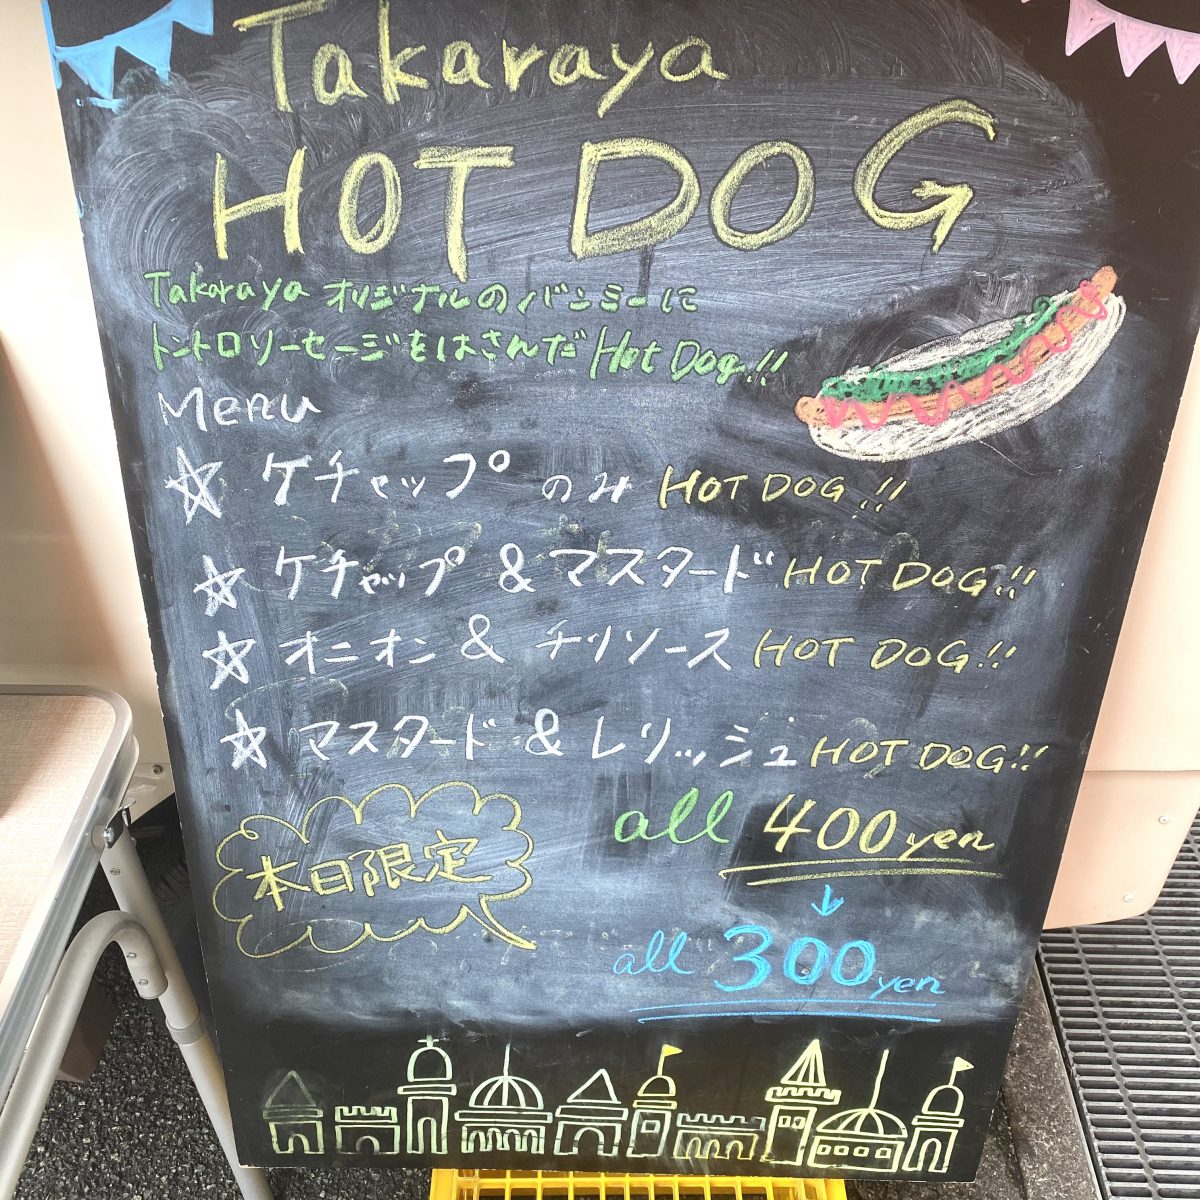 Takaraya
HOT DOG
Takaraya オリジナルのバンミーに
トントロソーセージをはさんだ Hot Dog!!
Menu
☆ ケチャップのみ HOT DOG!!
☆ ケチャップ & マスタード HOT DOG!!
☆ オニオン & チリソース HOT DOG!!
☆ マスタード & レリッシュ HOT DOG!!
all 400yen
本日限定
↓
all 300yen